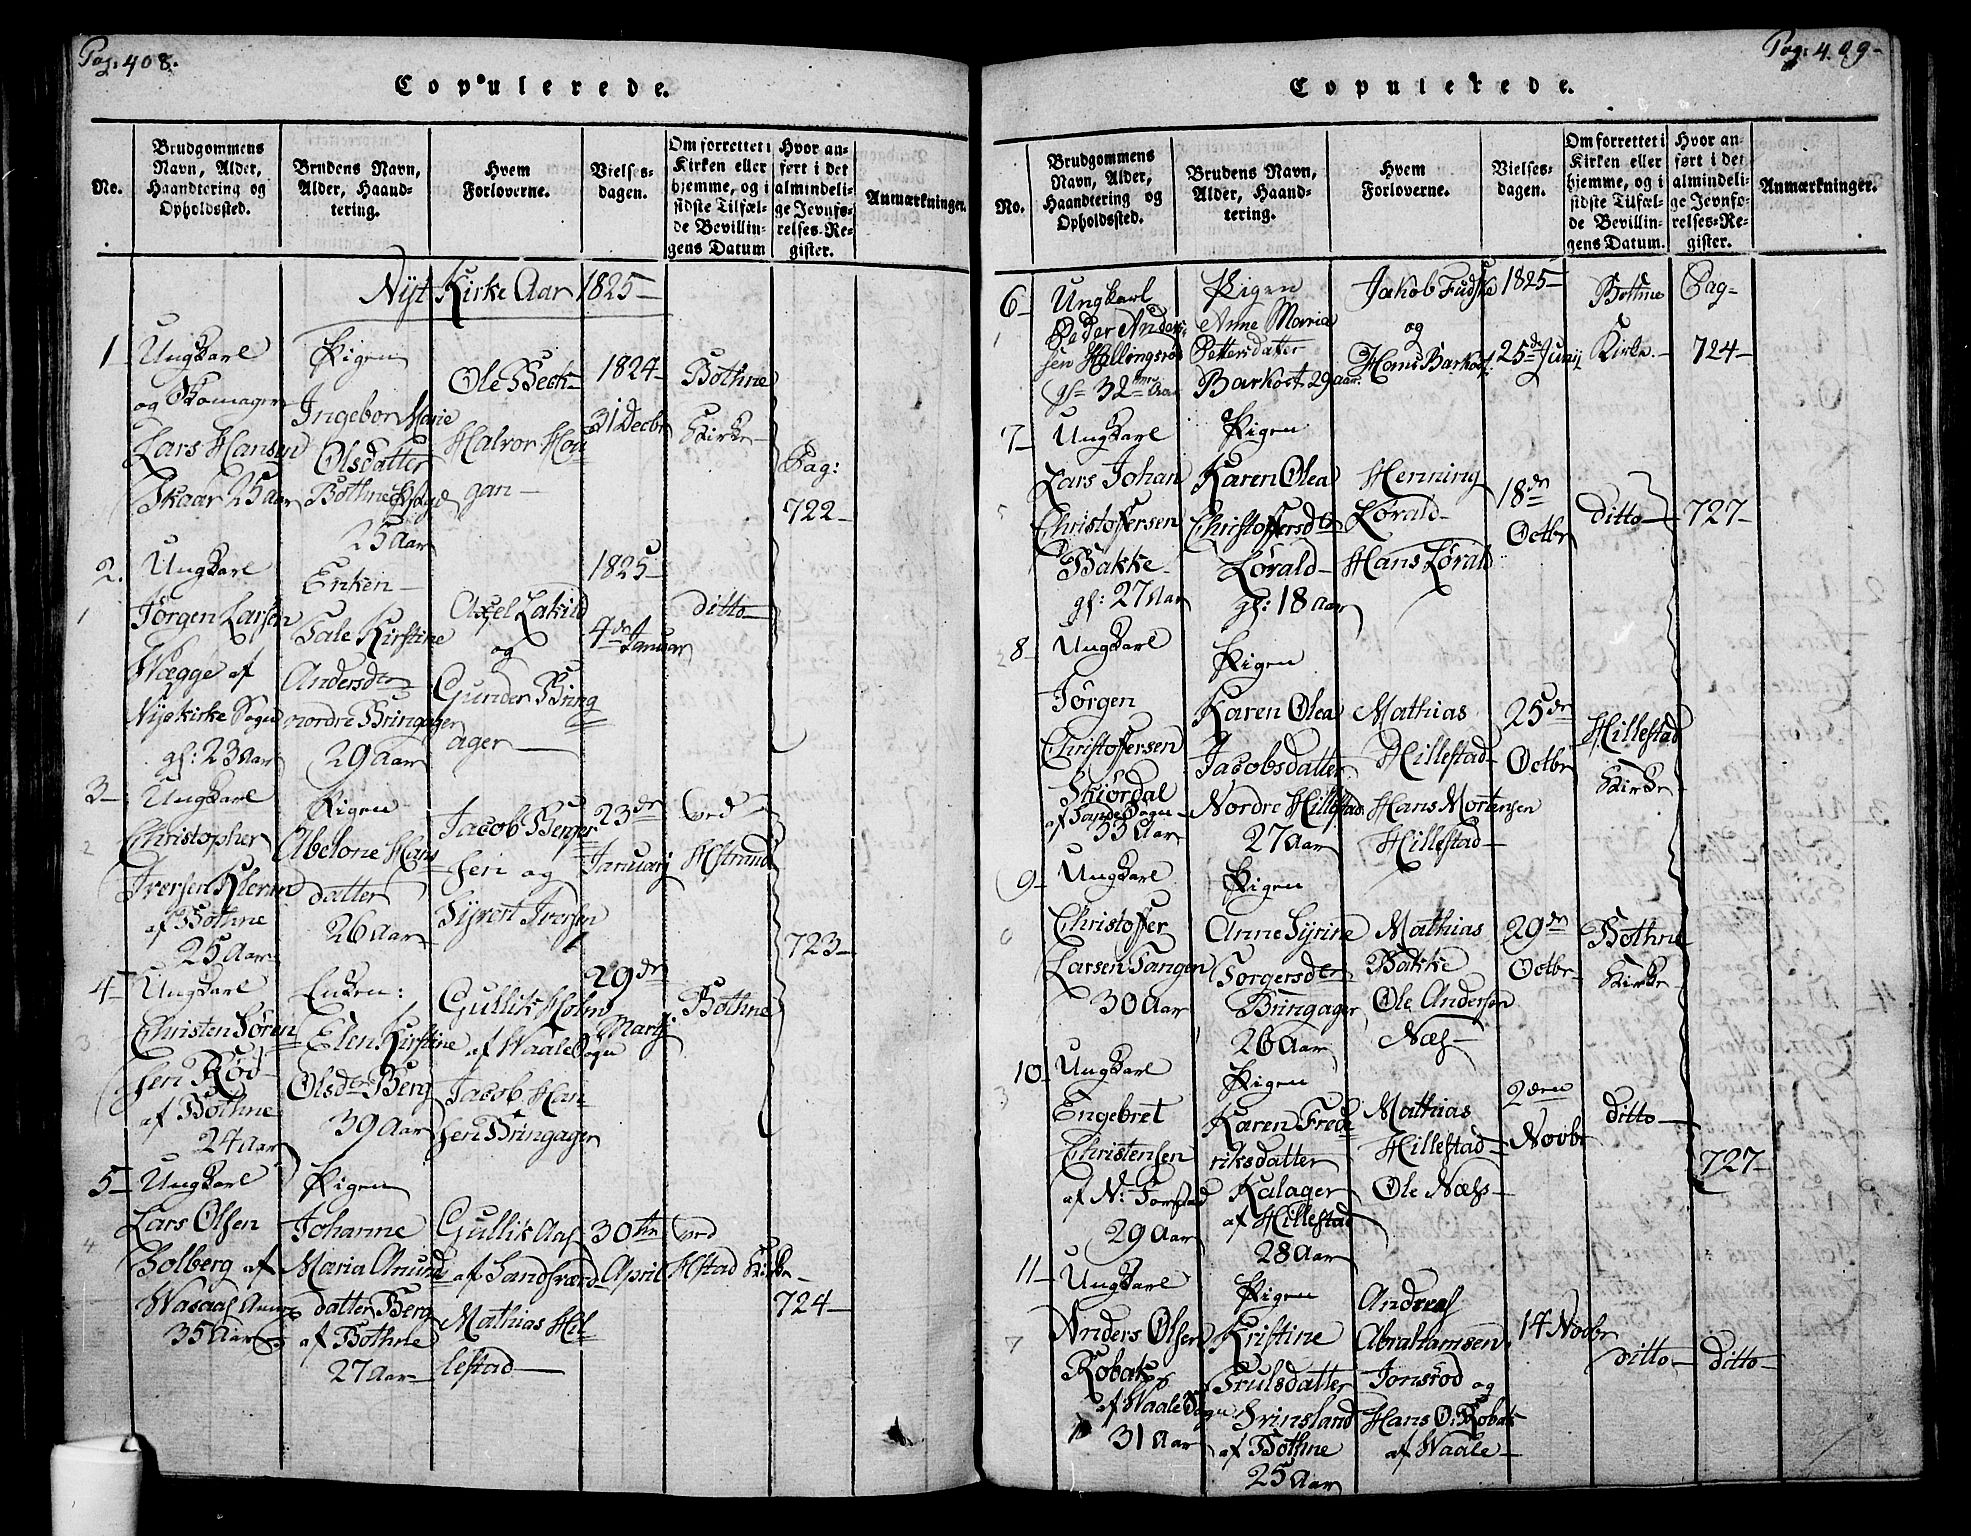 Pag: 408.
Copulerede.
No.
Brudgommens
Navn, Alder,
Haandtering og
Opholdssted.
Brudens Navn,
Alder, Haand-
tering.
Hvem
Forloverne.
Vielses-
dagen.
Om forrettet i
Kirken eller
hjemme, og i
sidste Tilfæl-
de Bevillin-
gens Datum
Hvor an-
ført i det
almindeli-
ge Jevnfø-
relses-Re-
gister.
Anmærkninger.
Nyt Kirke Aar 1825
1
Ungkarl
og Skomager
Lars Hansen
Skaar 25 aar
Pigen
Ingebor Marie
Olsdatter
Bothne
25 Aar
Ole Beck
Halvor Hou
gan
1824
31 Decbr
Bothne
Kirke
Pag:
722
2.
Ungkarl
Jørgen Larsen
Wægge af
Nyekirke Sogn
gl: 23 Aar
Enken
Tale Kirstine
Andersdtr
nordre Bringager
29 Aar
Axel Lakild
og
Gunder Bring
ager
1825
4de Januar
ditto
3
Ungkarl
Christopher
Iversen
af Bothne
25 Aar
Pigen
Abelone Hans
datter
26 Aar
Jacob Berger
sen og
Syvert Iversen
23de
Januarij
ved
Hstrand
723
4
Ungkarl
Christen Sören
sen Röd
af Bothne
24 aar
Enken:
Elen Kirstine
Olsdtr Berg
39 Aar
Gullik Holm
af Waale Sogn
Jacob Han
sen Bringager
29de
Martj
Bothne
5
Ungkarl
Lars Olsen
Solberg af
35 Aar
Pigen
Johanne
Maria Amund
datter Berg
af Bothne
27 Aar
Gullik Aas
af Sandsværd
Mathias Hil
lestad
30te
April
ved
Hstad Kirke
724
Pag: 409
Copulerede.
No.
Brudgommens
Navn, Alder,
Haandtering og
Opholdssted.
Brudens Navn,
Alder, Haand-
tering.
Hvem
Forloverne.
Vielses-
dagen.
Om forrettet i
Kirken eller
hjemme, og i
sidste Tilfæl-
de Bevillin-
gens Datum.
Hvor an-
ført i det
almindeli-
ge Jevnfø-
relses-Re-
gister.
Anmærkninger.
6
Ungkarl
Peder Ander
sen Hollingsrød
32 Aar
Pigen
Anne Maria
Pettersdatter
Barkost 29 aar
Jakob Fudske
og
Hans Barkost
1825
25de Junij
Bothne
Kirke
Pag
724
7
Ungkarl
Lars Johan
Christoffersen
Bakke
gl: 27 Aar
Pigen
Karen Olea
Christoffersdtr
Lørald
gl: 18 aar
Henning
Lørald
Hans Lørald
18de
Octbr
ditto
727
8
Ungkarl
Jørgen
Christoffersen
Skiördal
33 Aar
Pigen
Karen Olea
Jacobsdatter
Nordre Hillestad
27 Aar
Mathias
Hillestad
Hans Mortensen
Hillestad
25de
Octbr
Hillestad
Kirke
9
Ungkarl
Christoffer
Larsen Tangen
30 Aar
Pigen
Anne Syrine
Torgersdtr
Bringager
26 Aar
Mathias
Bakke
Ole Andersen
Næs
29de
Octbr
Bothne
Kirke
10
Ungkarl
Engebret
Christensen
af N: Forstad
29 Aar
Pigen
Karen Frede
riksdatter
Kalager
af Hillestad
28 Aar
Mathias
Hillestad
Ole Næss
2den
Novbr
ditto
727
11
Ungkarl
Anders Olsen
Robak
af Waale Sogn
31 Aar
Pigen
Kristine
Trulsdatter
Grinsland
af Bothne
25 Aar
Andreas
Abrahamsen
Jonsrød og
Hans O: Robak
af Waale
14 Novbr
ditto
ditto